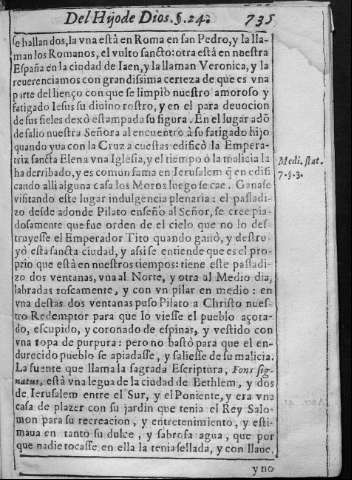 Del Hijo de Dios. §. 24. 735
se hallan dos, la vna está en Roma en san Pedro, y la lla-
man los Romanos, el vulto sancto: otra está en nuestra
España en la ciudad de Iaen, y la llaman Veronica, y la
reuerenciamos con grandissima certeza de que es vna
parte del lienço con que se limpiò nuestro amoroso y
fatigado Iesus su diuino rostro, y en el para deuocion
de sus fieles dexò estampada su figura. En el lugar adõ
de salio nuestra Señora al encuentro à su fatigado hijo
quando yua con la Cruz a cuestas edificò la Empera-
triz sancta Elena vna Iglesia, y el tiempo ò la malicia la
ha derribado, y es comun fama en Ierusalem q̃ en edifi
cando alli alguna casa los Moros luego se cae. Ganase
visitando este lugar indulgencia plenaria: el passadi-
zo desde adonde Pilato enseño al Señor, se cree pia-
dosamente que fue orden del cielo que no lo des-
truyesse el Emperador Tito quando ganò, y destru-
yò esta sancta ciudad, y assi se entiende que es el pro-
prio que està en nuestros tiempos: tiene este passadi-
zo dos ventanas, vna al Norte, y otra al Medio dia,
labradas toscamente, y con vn pilar en medio: en
vna destas dos ventanas puso Pilato a Christo nues-
tro Redemptor para que lo viesse el pueblo açota-
do, escupido, y coronado de espinas, y vestido con
vna ropa de purpura: pero no bastò para que el en-
durecido pueblo se apiadasse, y saliesse de su malicia.
La fuente que llama la sagrada Escriptura, Fons sig-
natus, està vna legua de la ciudad de Bethlem, y dos
de Ierusalem entre el Sur, y el Poniente, y era vna
casa de plazer con su jardin que tenia el Rey Salo-
mon para su recreacion, y entretenimiento, y esti-
maua en tanto su dulce, y sabrosa agua, que por
que nadie tocasse en ella la tenia sellada, y con llaue,
y no
Medi. stat.
7. §. 3.